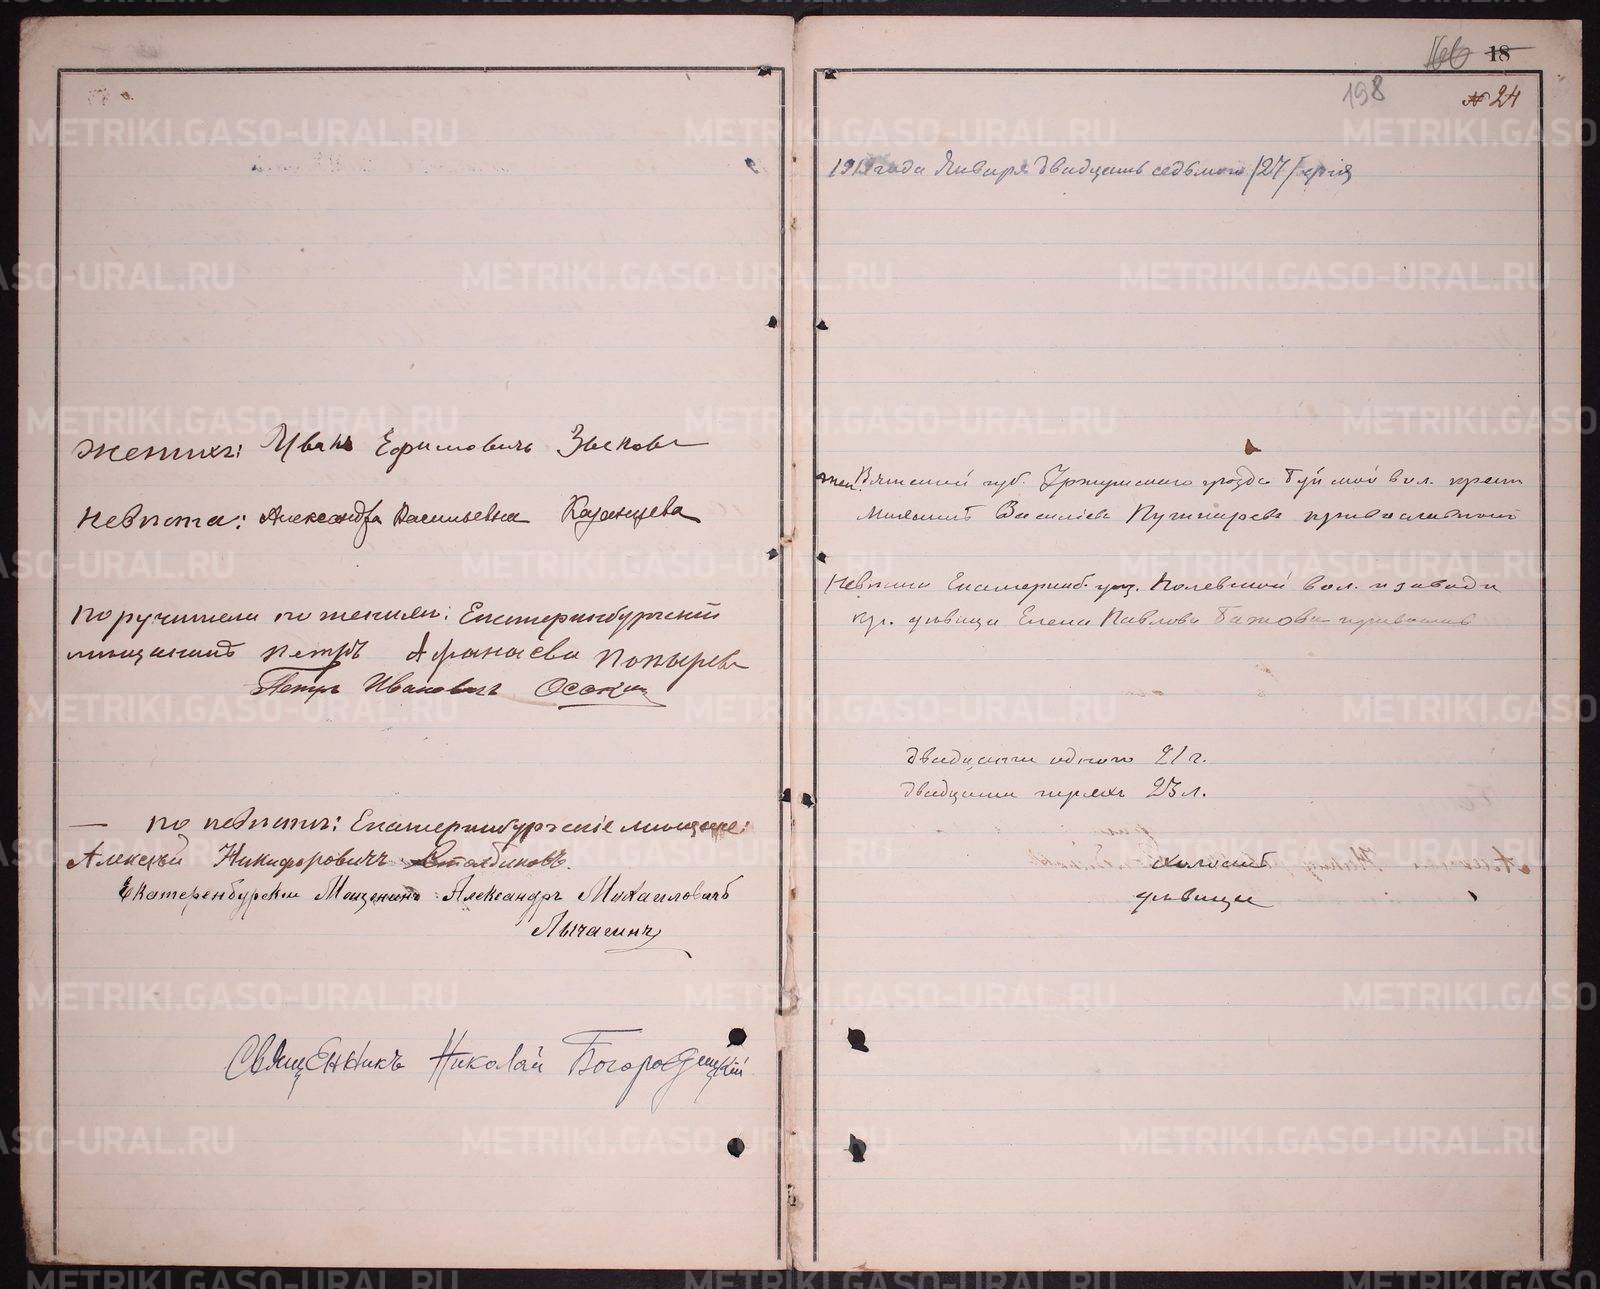 женихъ: Иванъ Ефимовичъ Зыковъ
невѣста: Александра Васильевна Казанцева
поручители по женихѣ: Екатеринбургскій
мѣщанинъ Петръ Афанасьевъ Попыревъ
Петръ Ивановичъ Осокинъ
— по невѣстѣ: Екатеринбургскіе мѣщане:
Алексѣй Никифоровичъ Столбиковъ.
Екатеренбурский Мещенинъ Александръ Михаиловичъ
Лычагинъ
Священникъ Николай Богородицкій
18
198
№ 24
года Января двадцать седьмого /27/ дня
жен. Вятской губ. Уржумского уѣзда Буйской вол. крест.
Василіевъ православной
невѣста Екатеринб. уѣз. Полевской вол. и завода
кр. дѣвица Елена Павлова Бажова православ
двадцати одного 21 г.
двадцати трехъ 23 л.
холостъ
дѣвица
METRIKI.GASO-URAL.RU